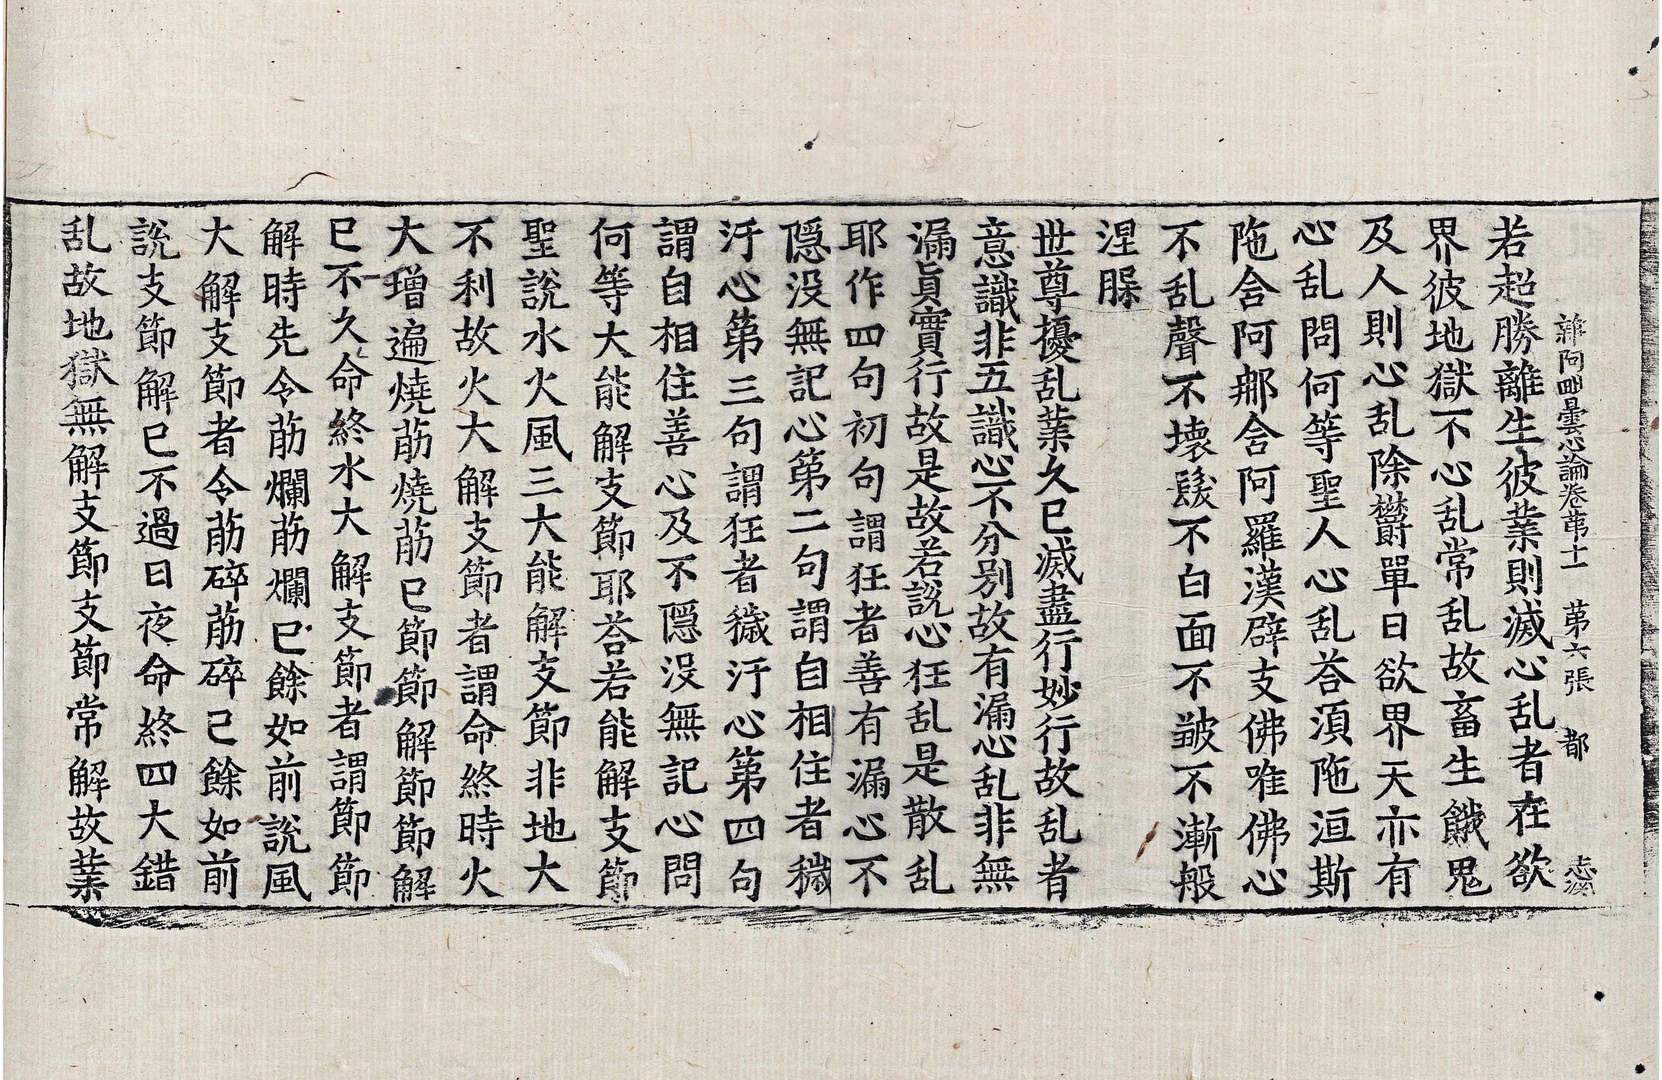 雜阿毗曇心論卷苐十一 苐六張 都 志㴠
若超勝離生彼業則滅心乱者在欲
界彼地獄不心乱常乱故畜生餓鬼
及人則心乱除欝單曰欲界天亦有
心乱問何等聖人心乱荅湏陁洹斯
陁含阿那含阿羅漢辟支佛唯佛心
不乱聲不壞髮不白面不皺不漸般
涅槃
世尊擾乱業久已滅盡行妙行故乱者
意識非五識心不分别故有漏心乱非無
漏眞實行故是故若說心狂乱是散乱
耶作四句初句謂狂者善有漏心不
隱没無記心第二句謂自相住者穢
汙心第三句謂狂者穢汙心第四句
謂自相住善心及不隱没無記心問
何等大能解支節耶荅若能解支節
聖說水火風三大能解支節非地大
不利故火大解支節者謂命終時火
大增遍燒莇燒莇已節節解節節解
已不久命終水大解支節者謂節節
解時先令莇爛莇爛已餘如前說風
大解支節者令莇碎莇碎已餘如前
說支節解已不過日夜命終四大錯
乱故地獄無解支節支節常解故業